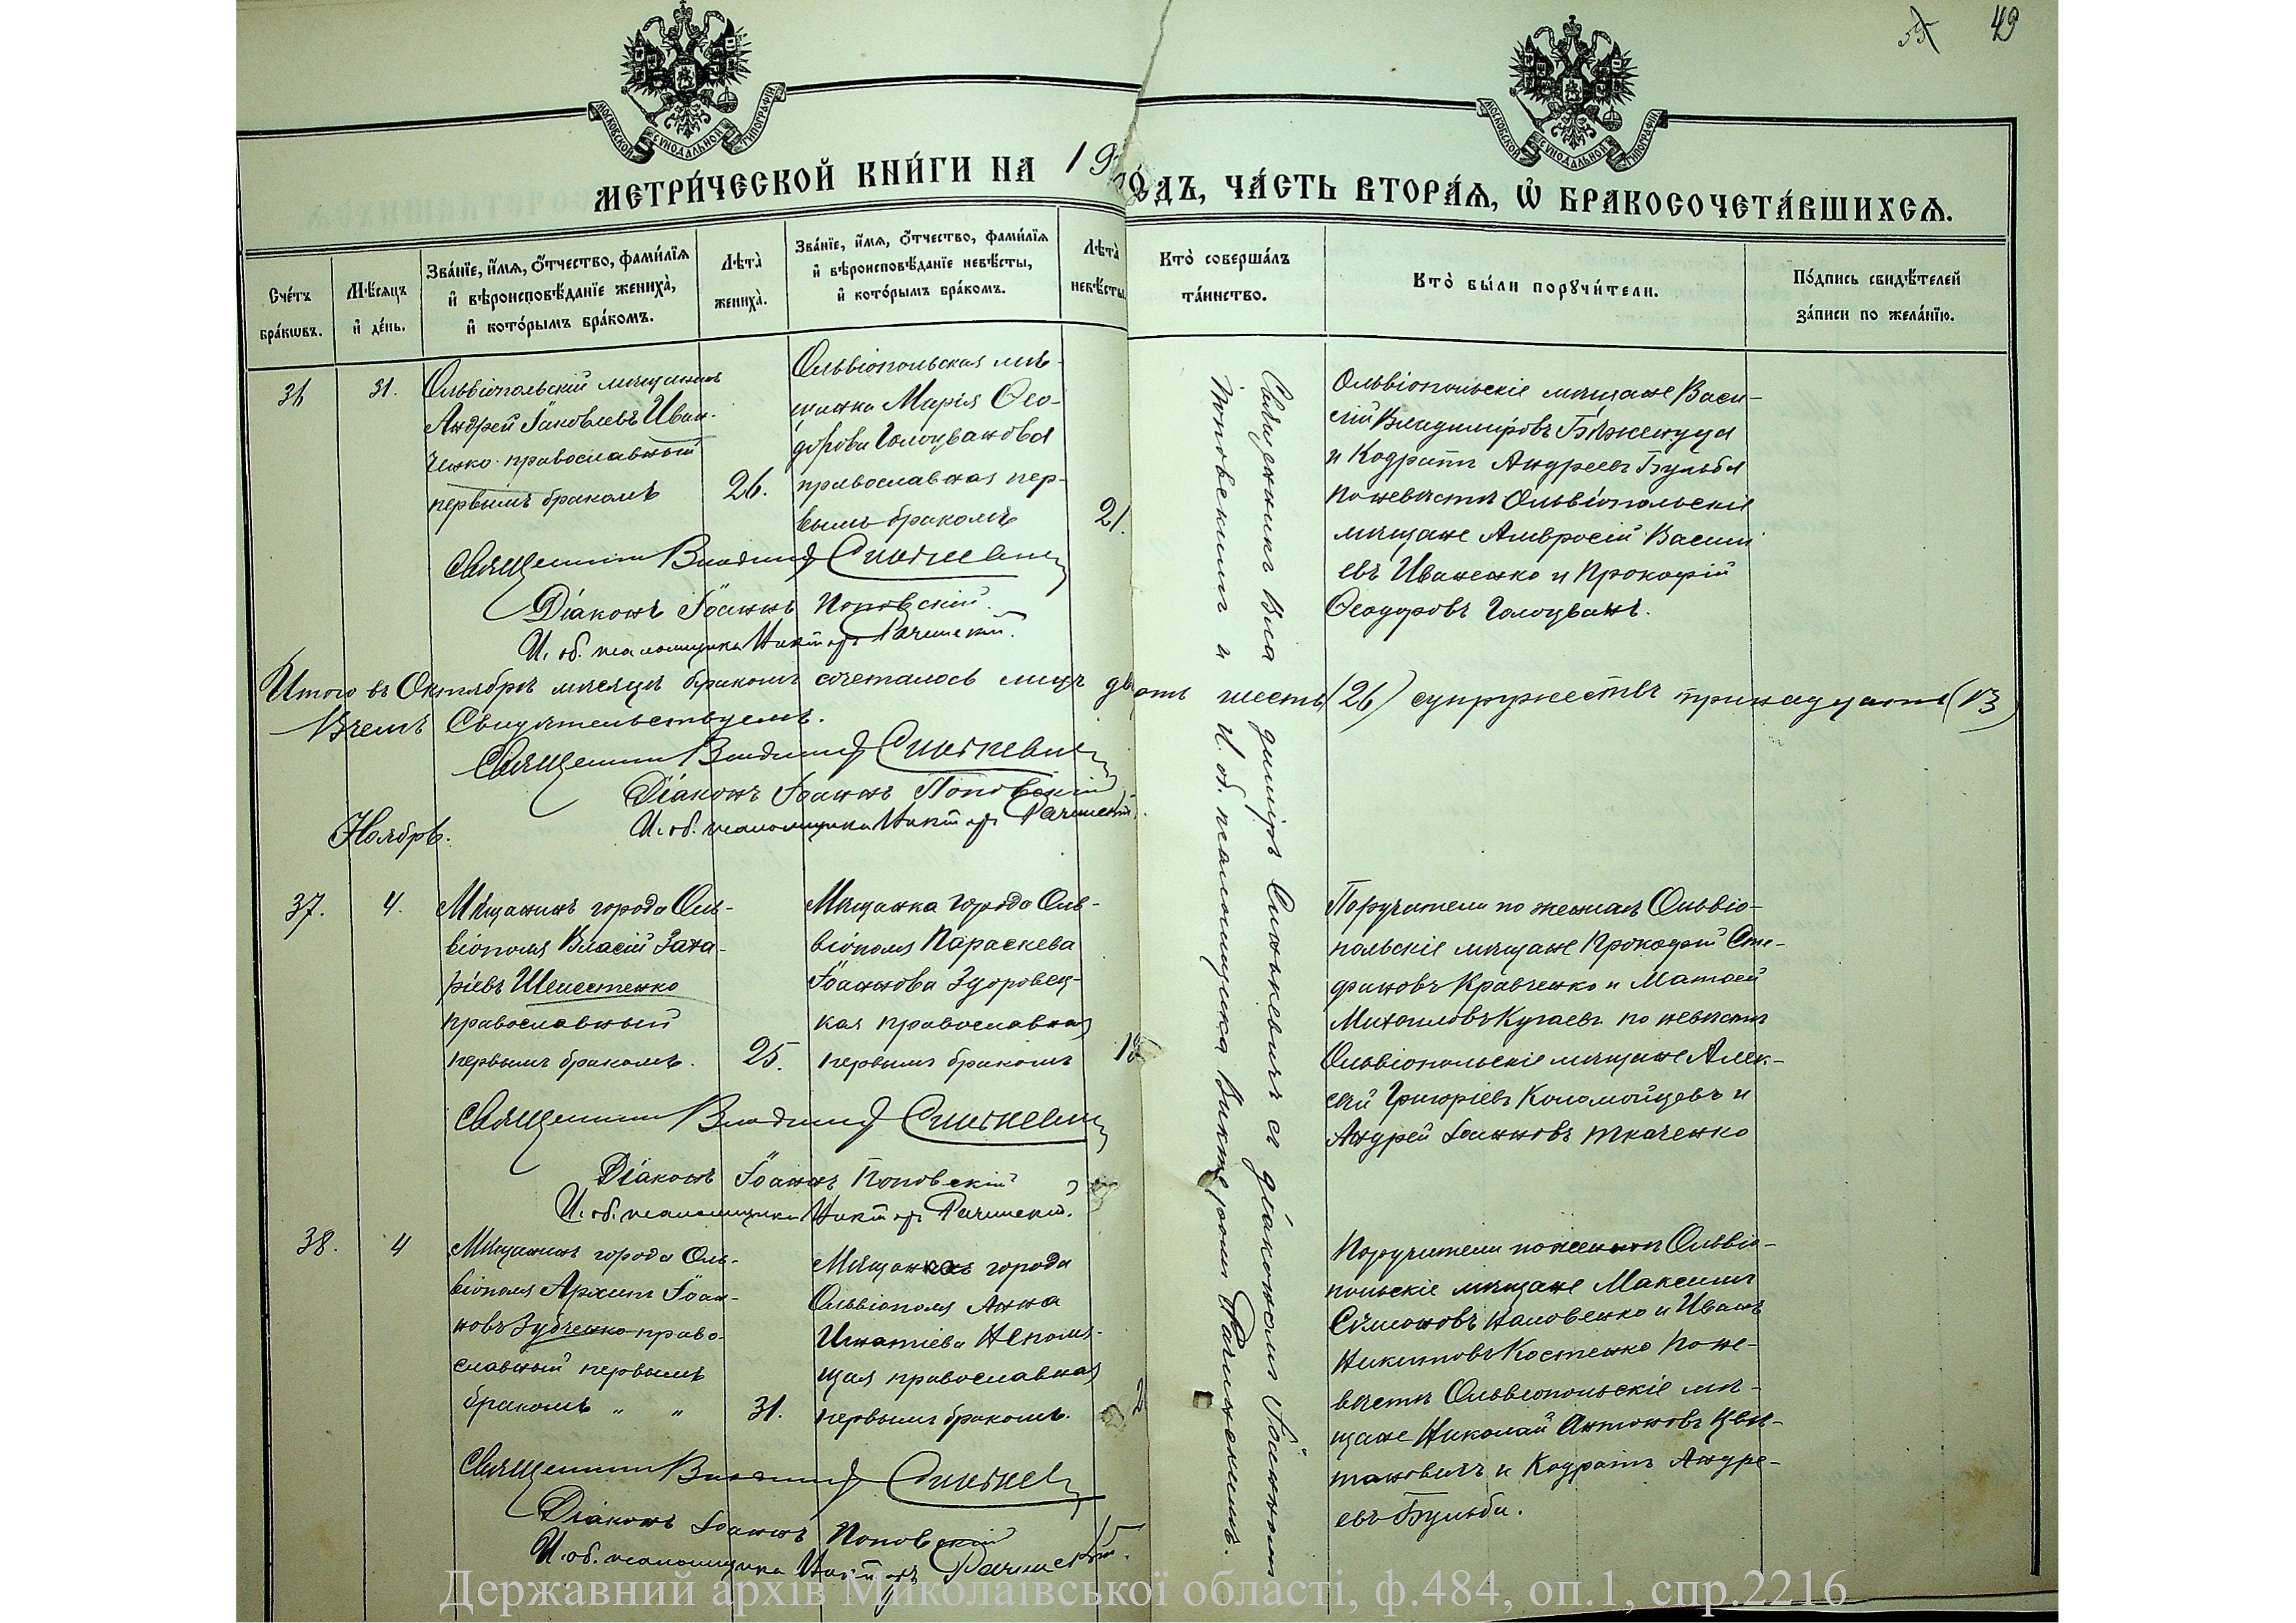 49
МОСКОВСКОЙ СУНОДАЛЬНОЙ ТИПОГРАФІИ
МОСКОВСКОЙ СУНОДАЛЬНОЙ ТИПОГРАФІИ
МЕТРИ́ЧЕСКОЙ КНИ́ГИ НА 19
ОДЪ, ЧА́СТЬ ВТОРА́Ѧ, Ѽ БРАКОСОЧЕТА́ВШИХСѦ.
Сче́тъ бра́кѡвъ.
Мѣ́сяцъ и де́нь.
Зва́нїе, и́мѧ, ѻ҆́тчество, фами́лїѧ
и вѣроисповѣ́данїе жениха̀,
и кото́рымъ бра́комъ.
Лѣта̀ жениха̀.
Зва́нїе, и́мѧ, ѻ҆́тчество, фами́лїѧ
и вѣроисповѣ́данїе невѣ́сты,
и кото́рымъ бра́комъ.
Лѣта̀ невѣ́сты.
Кто̀ соверша́лъ
та́инство.
Кто̀ бы́ли порꙋчи́тели.
По́дпись свидѣ́телей
за́писи по жела́нїю.
36
31.
Ольвіопольскій мѣщанинъ
Андрей Іаковлевъ Иван-
ченко православный
первымъ бракомъ
26.
Ольвіопольская мѣ-
щанка Марія Ѳео-
дорова Голоцванова
православная пер-
вымъ бракомъ
21.
Ольвіопольскіе мѣщане Васи-
лій Владиміровъ
и Кодратъ Андреевъ Бульба
по невѣстѣ Ольвіопольскіе
мѣщане Амвросій Василі
евъ Иваненко и Прокофій
Ѳеодоровъ Голоцванъ.
Священникъ Владиміръ Синькевичъ
Діаконъ Іоаннъ Поповскій.
И. об. псаломщика Викторъ Рачинскій.
Итого въ Октябрѣ мѣсяцѣ бракомъ сочеталось лицъ дв
ать шесть (26) супружествъ тринадцать (13)
Въ чемъ Свидѣтельствуемъ.
Священникъ Владиміръ Синькевичъ
Діаконъ Іоаннъ Поповскій
И. об. псаломщика Викторъ Рачинскій.
Ноябрь.
37.
4.
Мѣщанинъ города Оль-
віополя Власій Заха-
ріевъ Шелестенко
православный
первымъ бракомъ.
25.
Мѣщанка города Оль-
віополя Параскева
Іоаннова Здоровец-
кая православная
первымъ бракомъ
Поручители по женихѣ Ольвіо-
польскіе мѣщане Прокофій Сте-
фановъ Кравченко и Матѳей
Михаиловъ Кугаевъ по невѣстѣ
Ольвіопольскіе мѣщане Алек-
сѣй Григоріевъ Коломойцевъ и
Андрей Іоанновъ Ткаченко
Священникъ Владиміръ Синькевичъ
Діаконъ Іоаннъ Поповскій
И. об. псаломщика Викторъ Рачинскій.
38.
4
Мѣщанинъ города Оль-
віополя Архипъ Іоан-
новъ Зубченко право-
славный первымъ
бракомъ " "
31.
города
Ольвіополя Анна
Игнатіева Непомя-
щая православная
первымъ бракомъ.
2
Поручители по женихѣ Ольвіо-
польскіе мѣщане Максимъ
Симоновъ и Иванъ
Никитовъ Костенко по не-
вѣстѣ Ольвіопольскіе мѣ-
щане Николай Антоновъ Цви-
тановичъ и Кодратъ Андре-
евъ Бульба.
Священникъ Владиміръ Синькевичъ
Діаконъ Іоаннъ Поповскій
И. об. псаломщика Викторъ Рачинскій.
Священникъ Владиміръ Синькевичъ съ діакономъ Іоанномъ
Поповскимъ и И. об. псаломщика Викторомъ Рачинскимъ.
Державний архів Миколаївської області, ф.484, оп.1, спр.2216